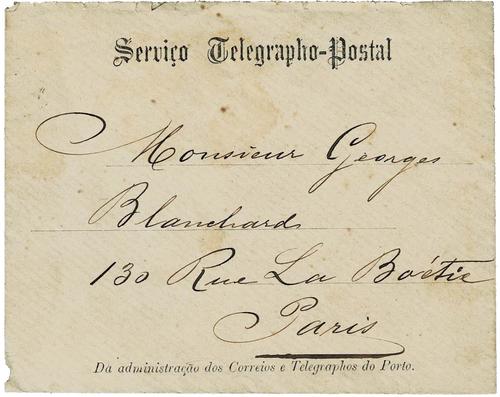 Serviço Telegrapho-Postal
Monsieur Georges
Blanchard
130 Rue La Boétie
Paris
Da administração dos Correios e Telegraphos do Porto.